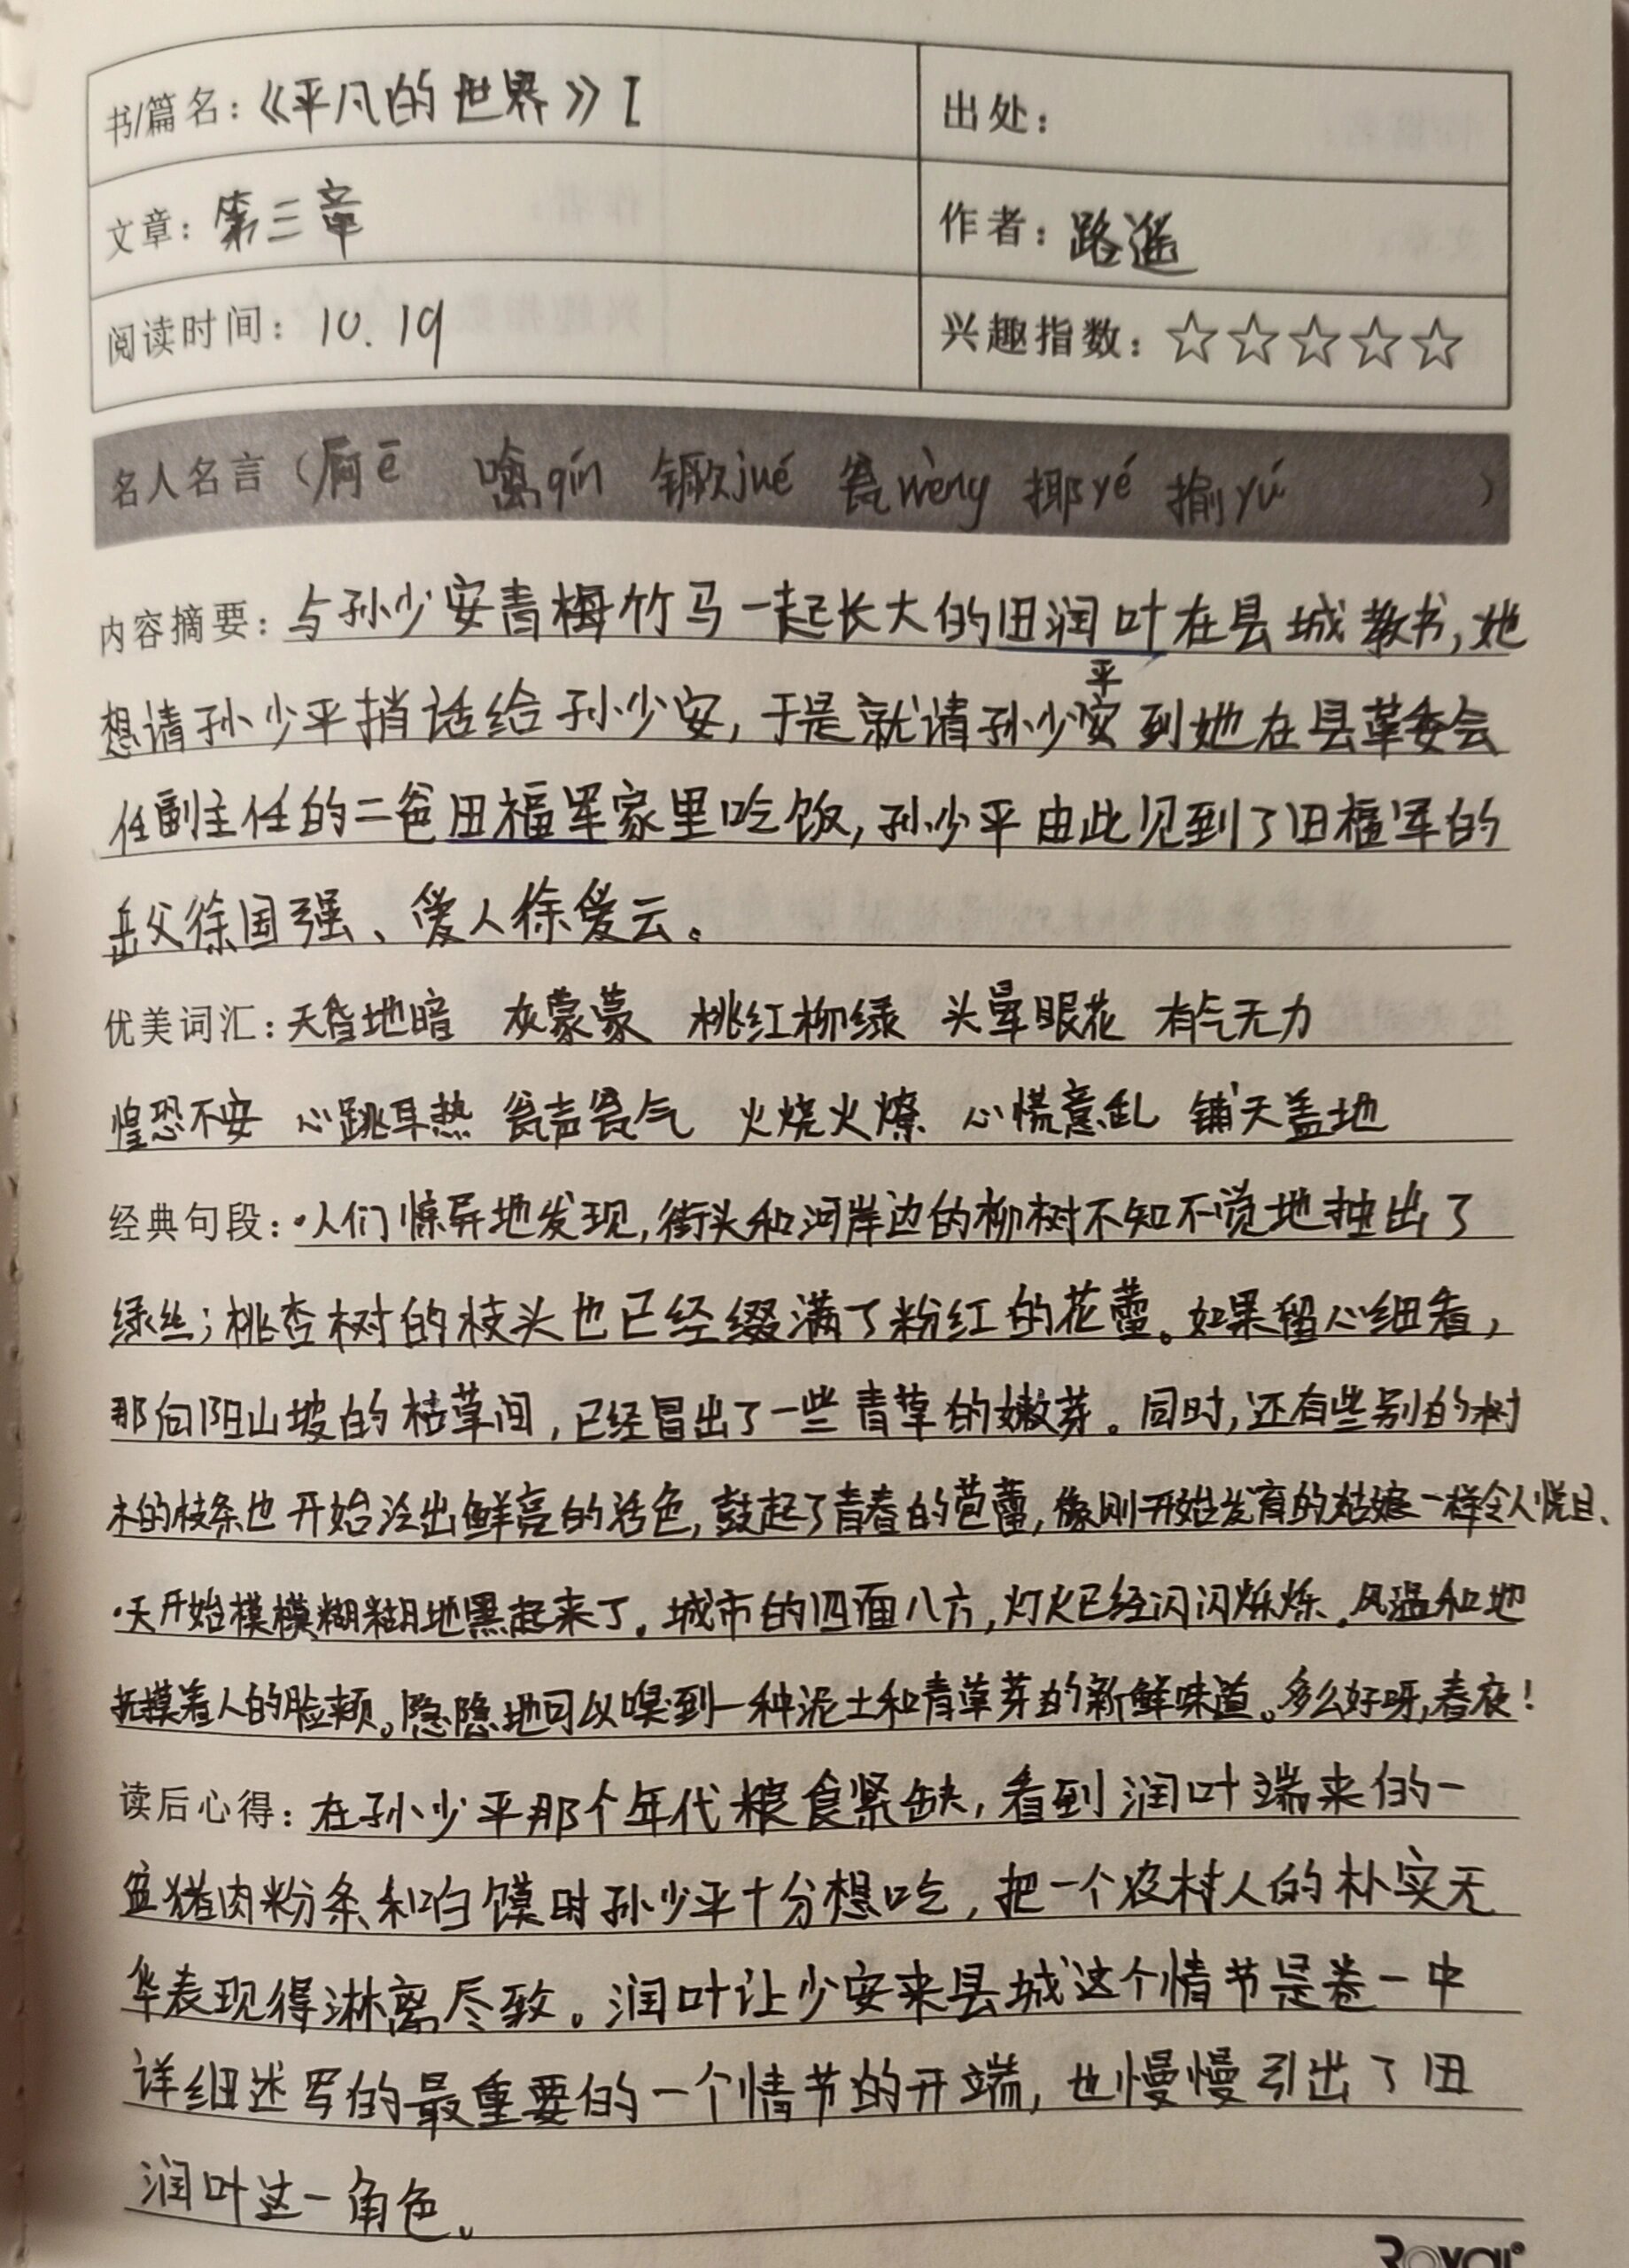 书/篇名：《平凡的世界》I
出处：
文章：第三章
作者：路遥
阅读时间：10.19
兴趣指数：☆☆☆☆☆
名人名言（屙ē 噙qín 镢jué 瓮wèng 揶yé 揄yú ）
内容摘要：与孙少安青梅竹马一起长大的田润叶在县城教书,她
平
想请孙少平捎话给孙少安,于是就请孙少安到她在县革委会
任副主任的二爸田福军家里吃饭,孙少平由此见到了田福军的
岳父徐国强、爱人徐爱云。
优美词汇：天昏地暗 灰蒙蒙 桃红柳绿 头晕眼花 有气无力
惶恐不安 心跳耳热 瓮声瓮气 火烧火燎 心慌意乱 铺天盖地
经典句段：·人们惊异地发现,街头和河岸边的柳树不知不觉地抽出了
绿丝；桃杏树的枝头也已经缀满了粉红的花蕾。如果留心细看,
那向阳山坡的枯草间,已经冒出了一些青草的嫩芽。同时,还有些别的树
木的枝条也开始泛出鲜亮的活色,鼓起了青春的苞蕾,像刚开始发育的姑娘一样令人悦目、
·天开始模模糊糊地黑起来了。城市的四面八方,灯火已经闪闪烁烁。风温和地
抚摸着人的脸颊。隐隐地可以嗅到一种泥土和青草芽的新鲜味道。多么好呀,春夜！
读后心得：在孙少平那个年代粮食紧缺,看到润叶端来的一
盆猪肉粉条和白馍时孙少平十分想吃,把一个农村人的朴实无
华表现得淋离尽致。润叶让少安来县城这个情节是卷一中
详细述写的最重要的一个情节的开端,也慢慢引出了田
润叶这一角色。
Royal